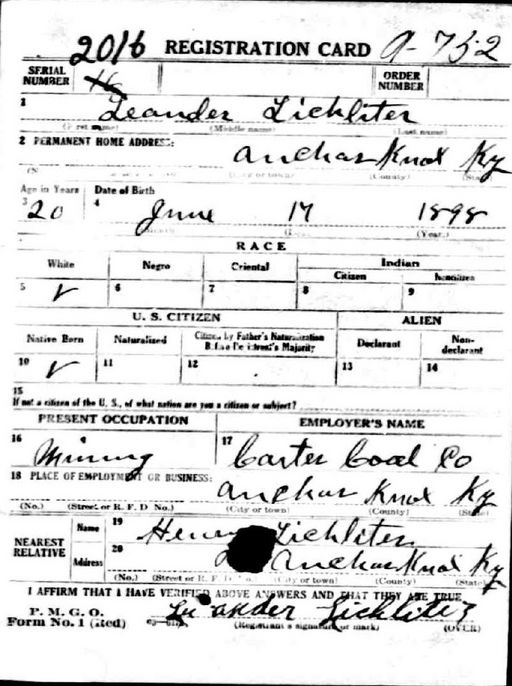 2016 REGISTRATION CARD A-752
SERIAL NUMBER ORDER NUMBER
1 Leander Lichliter
(First name) (Middle name) (Last name)
2 PERMANENT HOME ADDRESS:
Anchar Knox Ky
(City or town) (County) (State)
Age in Years Date of Birth
3 20 4 June 17 1898
(Month) (Year.)
RACE
White Negro Oriental Indian
Citizen Noncitizen
5 ✓ 6 7 8 9
U. S. CITIZEN ALIEN
Native Born Naturalized Citizen by Father's Naturalization Before Registrant's Majority Declarant Non-declarant
10 ✓ 11 12 13 14
15
If not a citizen of the U. S., of what nation are you a citizen or subject?
PRESENT OCCUPATION EMPLOYER'S NAME
16 Mining 17 Carter Coal Co
18 PLACE OF EMPLOYMENT OR BUSINESS:
Anchar Knox Ky
(No.) (Street or R. F. D No.) (City or town) (County) (State)
NEAREST RELATIVE Name 19 Henry Lichliter
Address 20 Anchar Knox Ky
(No.) (Street or R. F. D. No.) (City or town) (County) (State)
I AFFIRM THAT I HAVE VERIFIED ABOVE ANSWERS AND THAT THEY ARE TRUE
P. M. G. O.
Form No. 1 (Red) Leander Lichliter
(Registrant's signature or mark) (OVER)